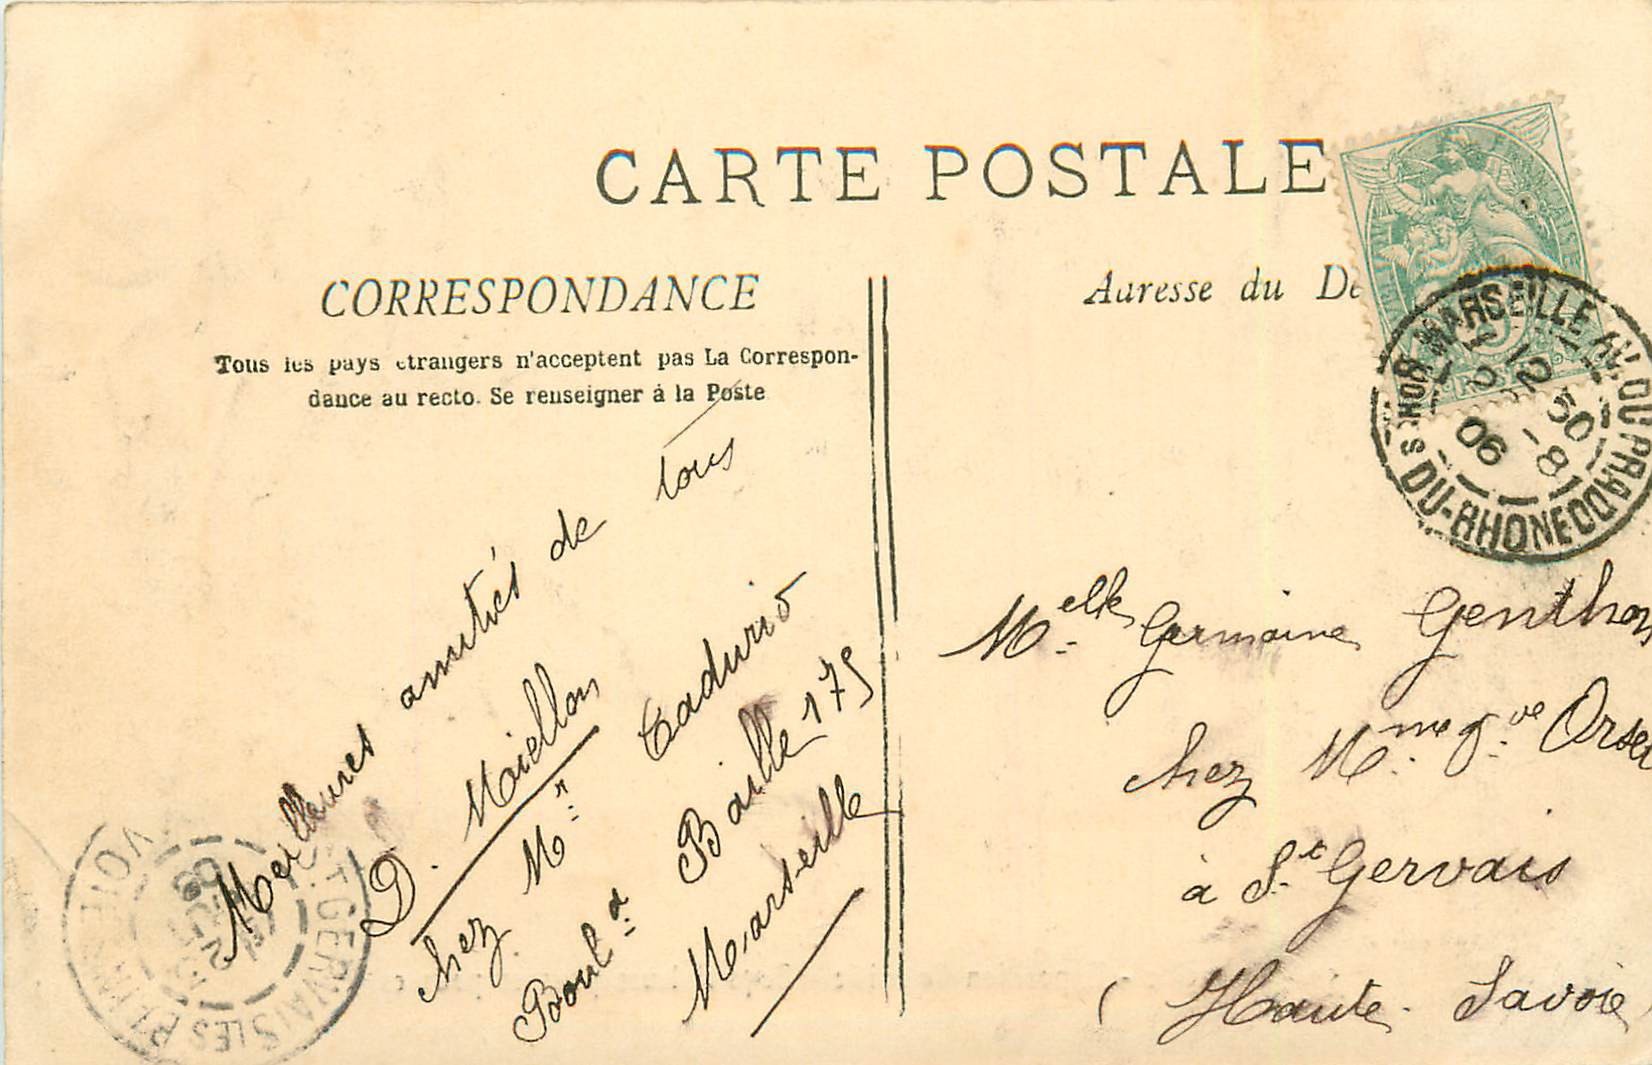 CARTE POSTALE
CORRESPONDANCE
Tous les pays étrangers n'acceptent pas La Correspon-
dance au recto. Se renseigner à la Poste
Meilleures amitiés de tous
D. Maiellon
chez Mr Cadurio
Bould Baille 175
Marseille
Adresse du De
MARSEILLE AV. DU PRADO
BCHES DU-RHONE
12 50
8
06
Melle Germaine Genthon
chez Mme Vve Orset
à St Gervais
(Haute-Savoie
ST GERVAIS LES BAINS